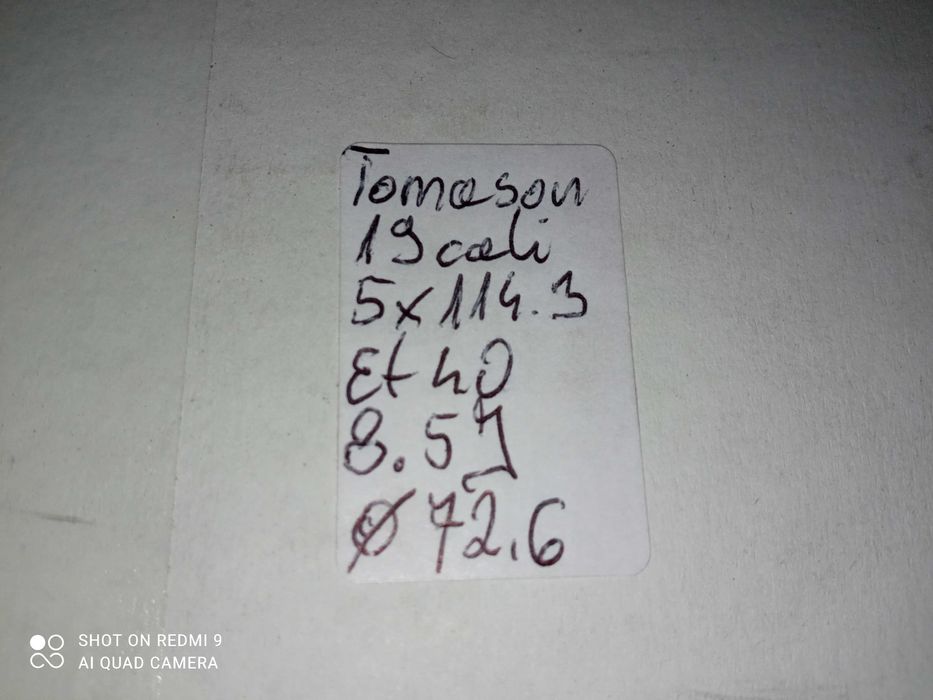 Tomason
19 cali
5x114.3
Et 40
8.5J
Ø 72.6
SHOT ON REDMI 9
AI QUAD CAMERA